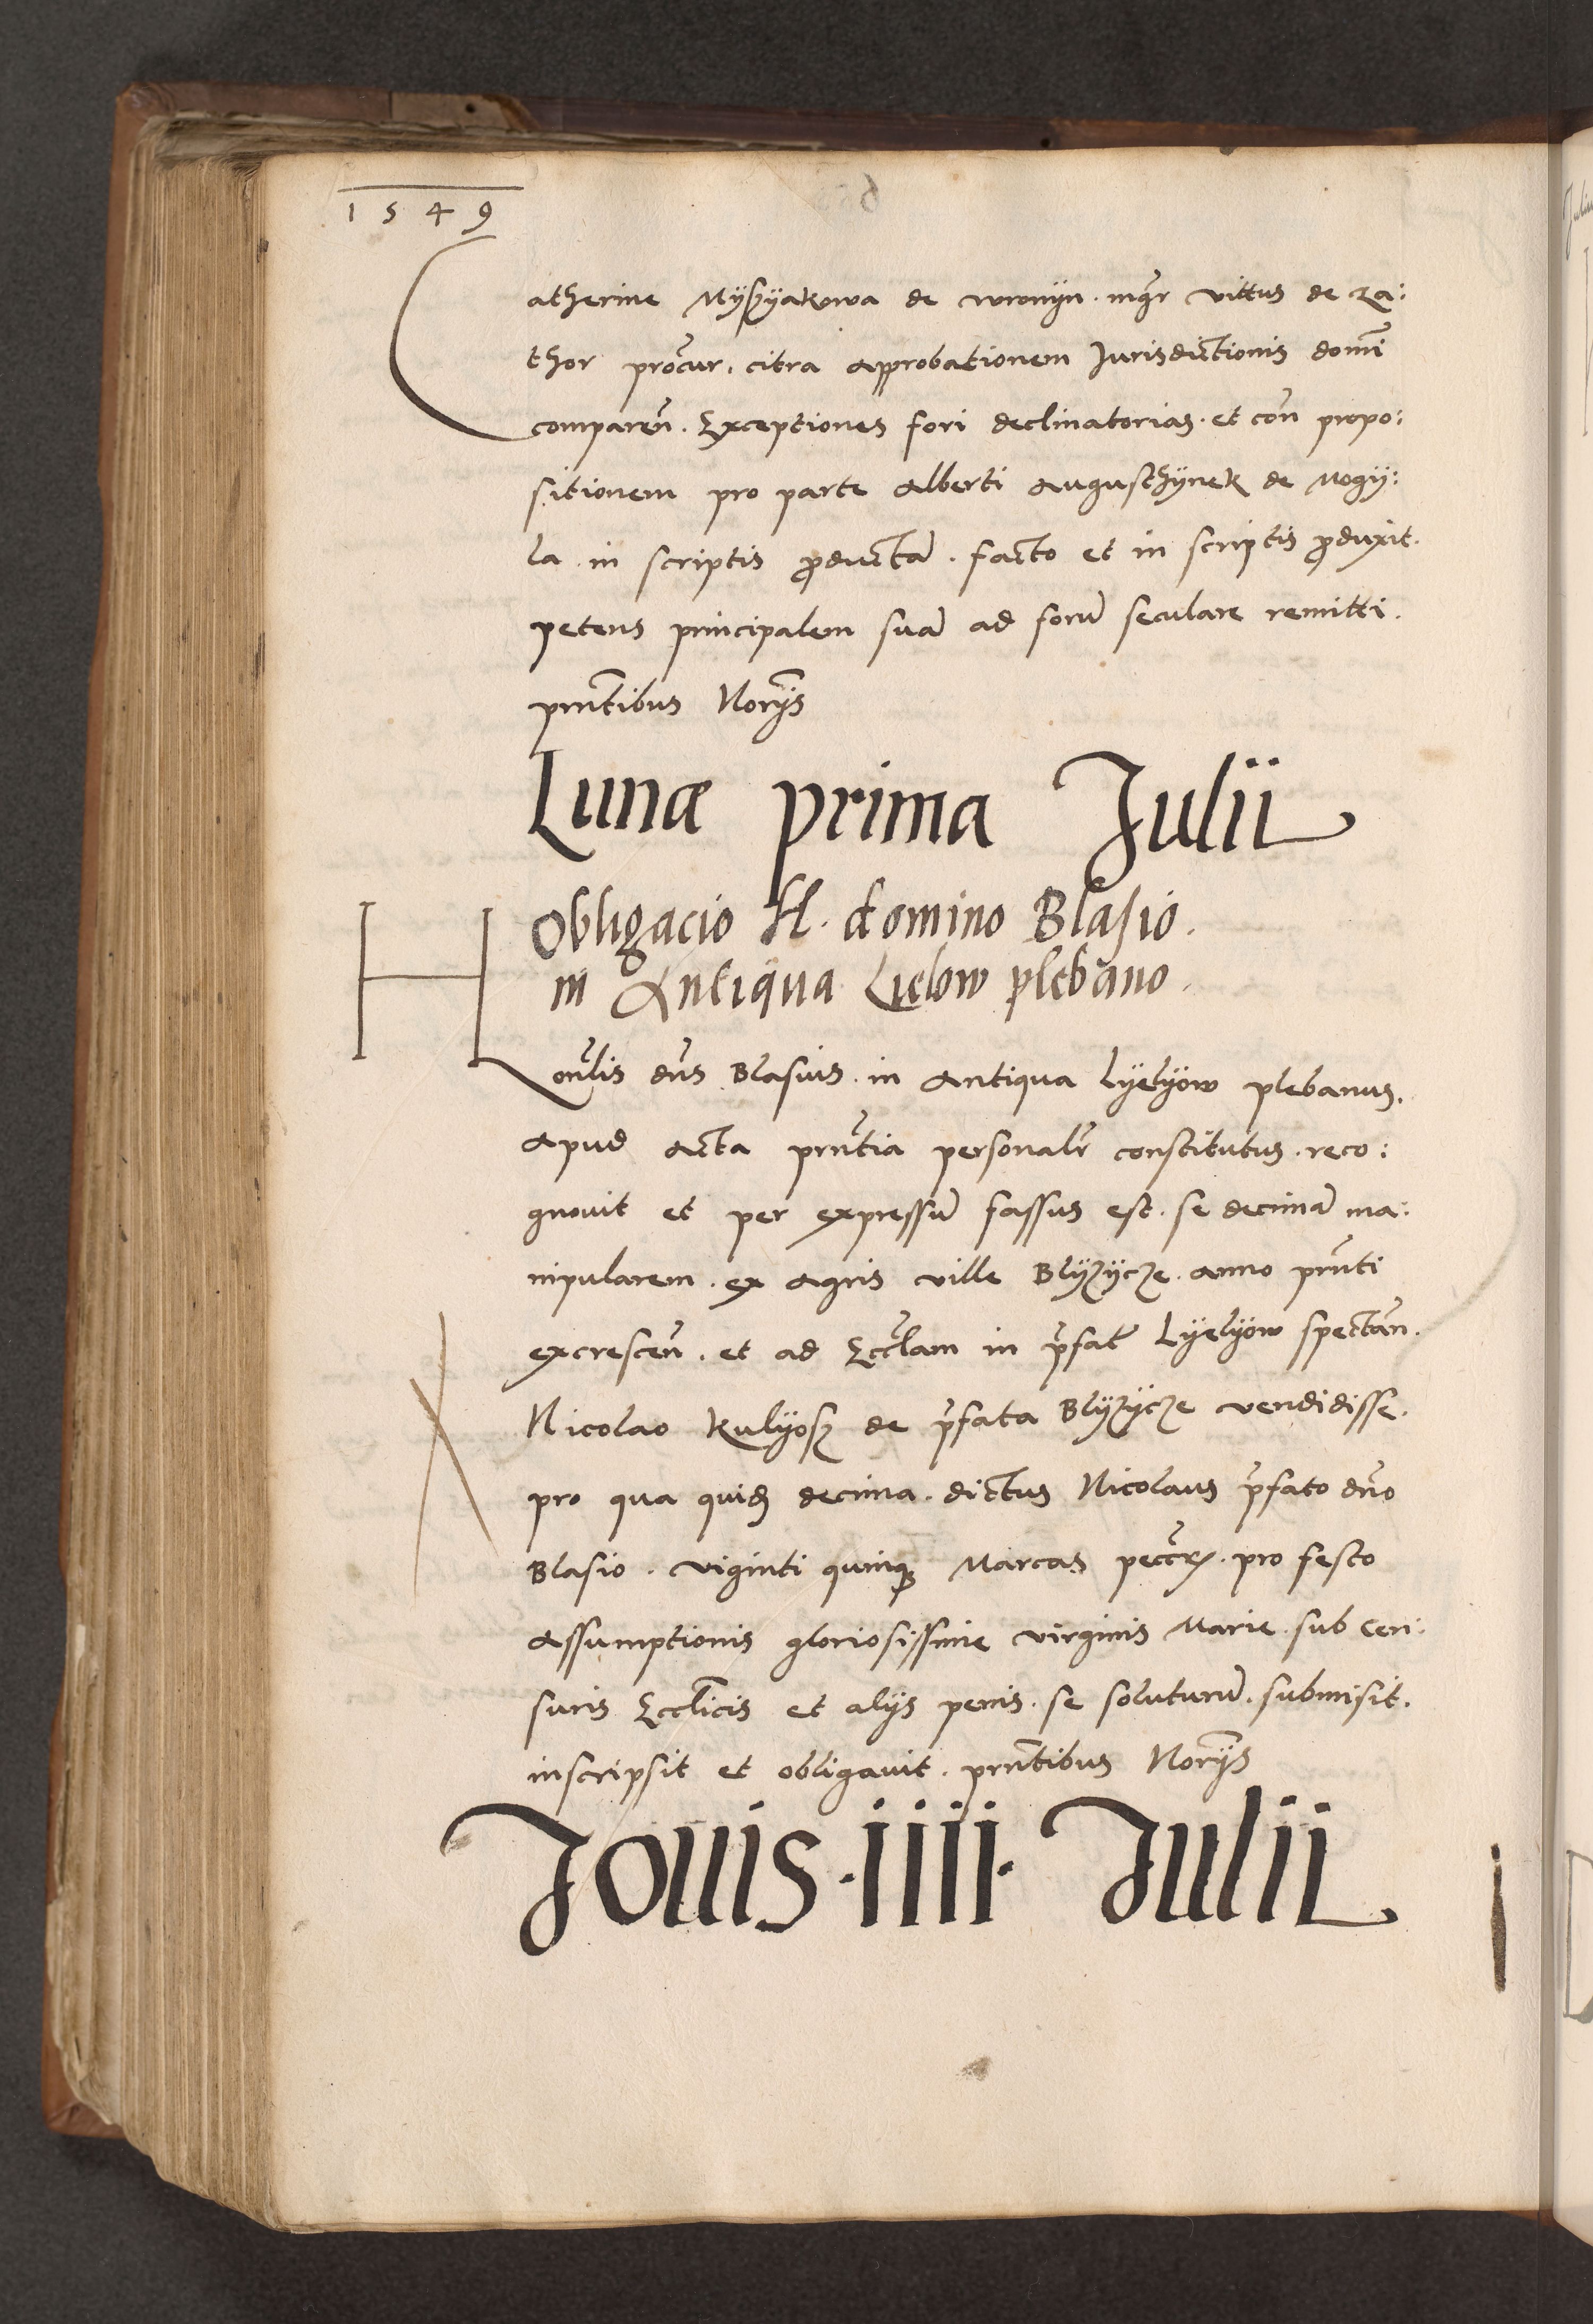 1549
Catherine Mÿsÿakowa de wronÿn. mgr vittus de za:
thor procur. citra approbationem Jurisdictionis domi
comparen. Exceptiones fori declinatorias. et con propo:
sitionem pro parte Alberti Augusthÿnek de Mogÿ:
la in scriptis productã. facto et in scriptis produxit.
petens principalem suã ad forũ seculare remitti.
prntibus Norÿs
Lunæ prima Julii
Obligacio H. domino Blasio.
in Antiqua Lielow plebano.
Honlis dns Blasius. in Antiqua Lÿelÿow plebanus.
Apud Acta prntia personalr constitutus. reco:
gnouit et per expressũ fassus est. se decimã ma:
nipularem. ex Agris ville Blÿzÿcze. Anno prnti
excrescen. et ad Ecclam in pfat Lÿelÿow spectan.
Nicolao Kulÿosz de pfata Blÿzÿcze vendidisse.
pro qua quid decima. dictus Nicolaus pfato dno
Blasio. viginti quinq Marcas peccr. pro festo
Assumptionis gloriosissime virginis Marie. sub cen:
suris Ecclicis et alÿs penis. se soluturũ. submisit.
inscripsit et obligauit. prntibus Norÿs
Jouis. iiii. Julii